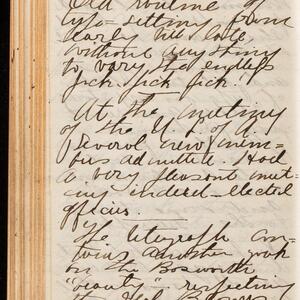 Old routine of
type-setting from
early till late,
without anything
to vary the endless
pick, pick, pick.
At the meeting
of the U. L. A.
several new mem-
bers admitted. Had
a very pleasant meet-
ing indeed - elected
officers.
The telegraph con-
tains another
on the Bosworth
"beauty" - respecting
the